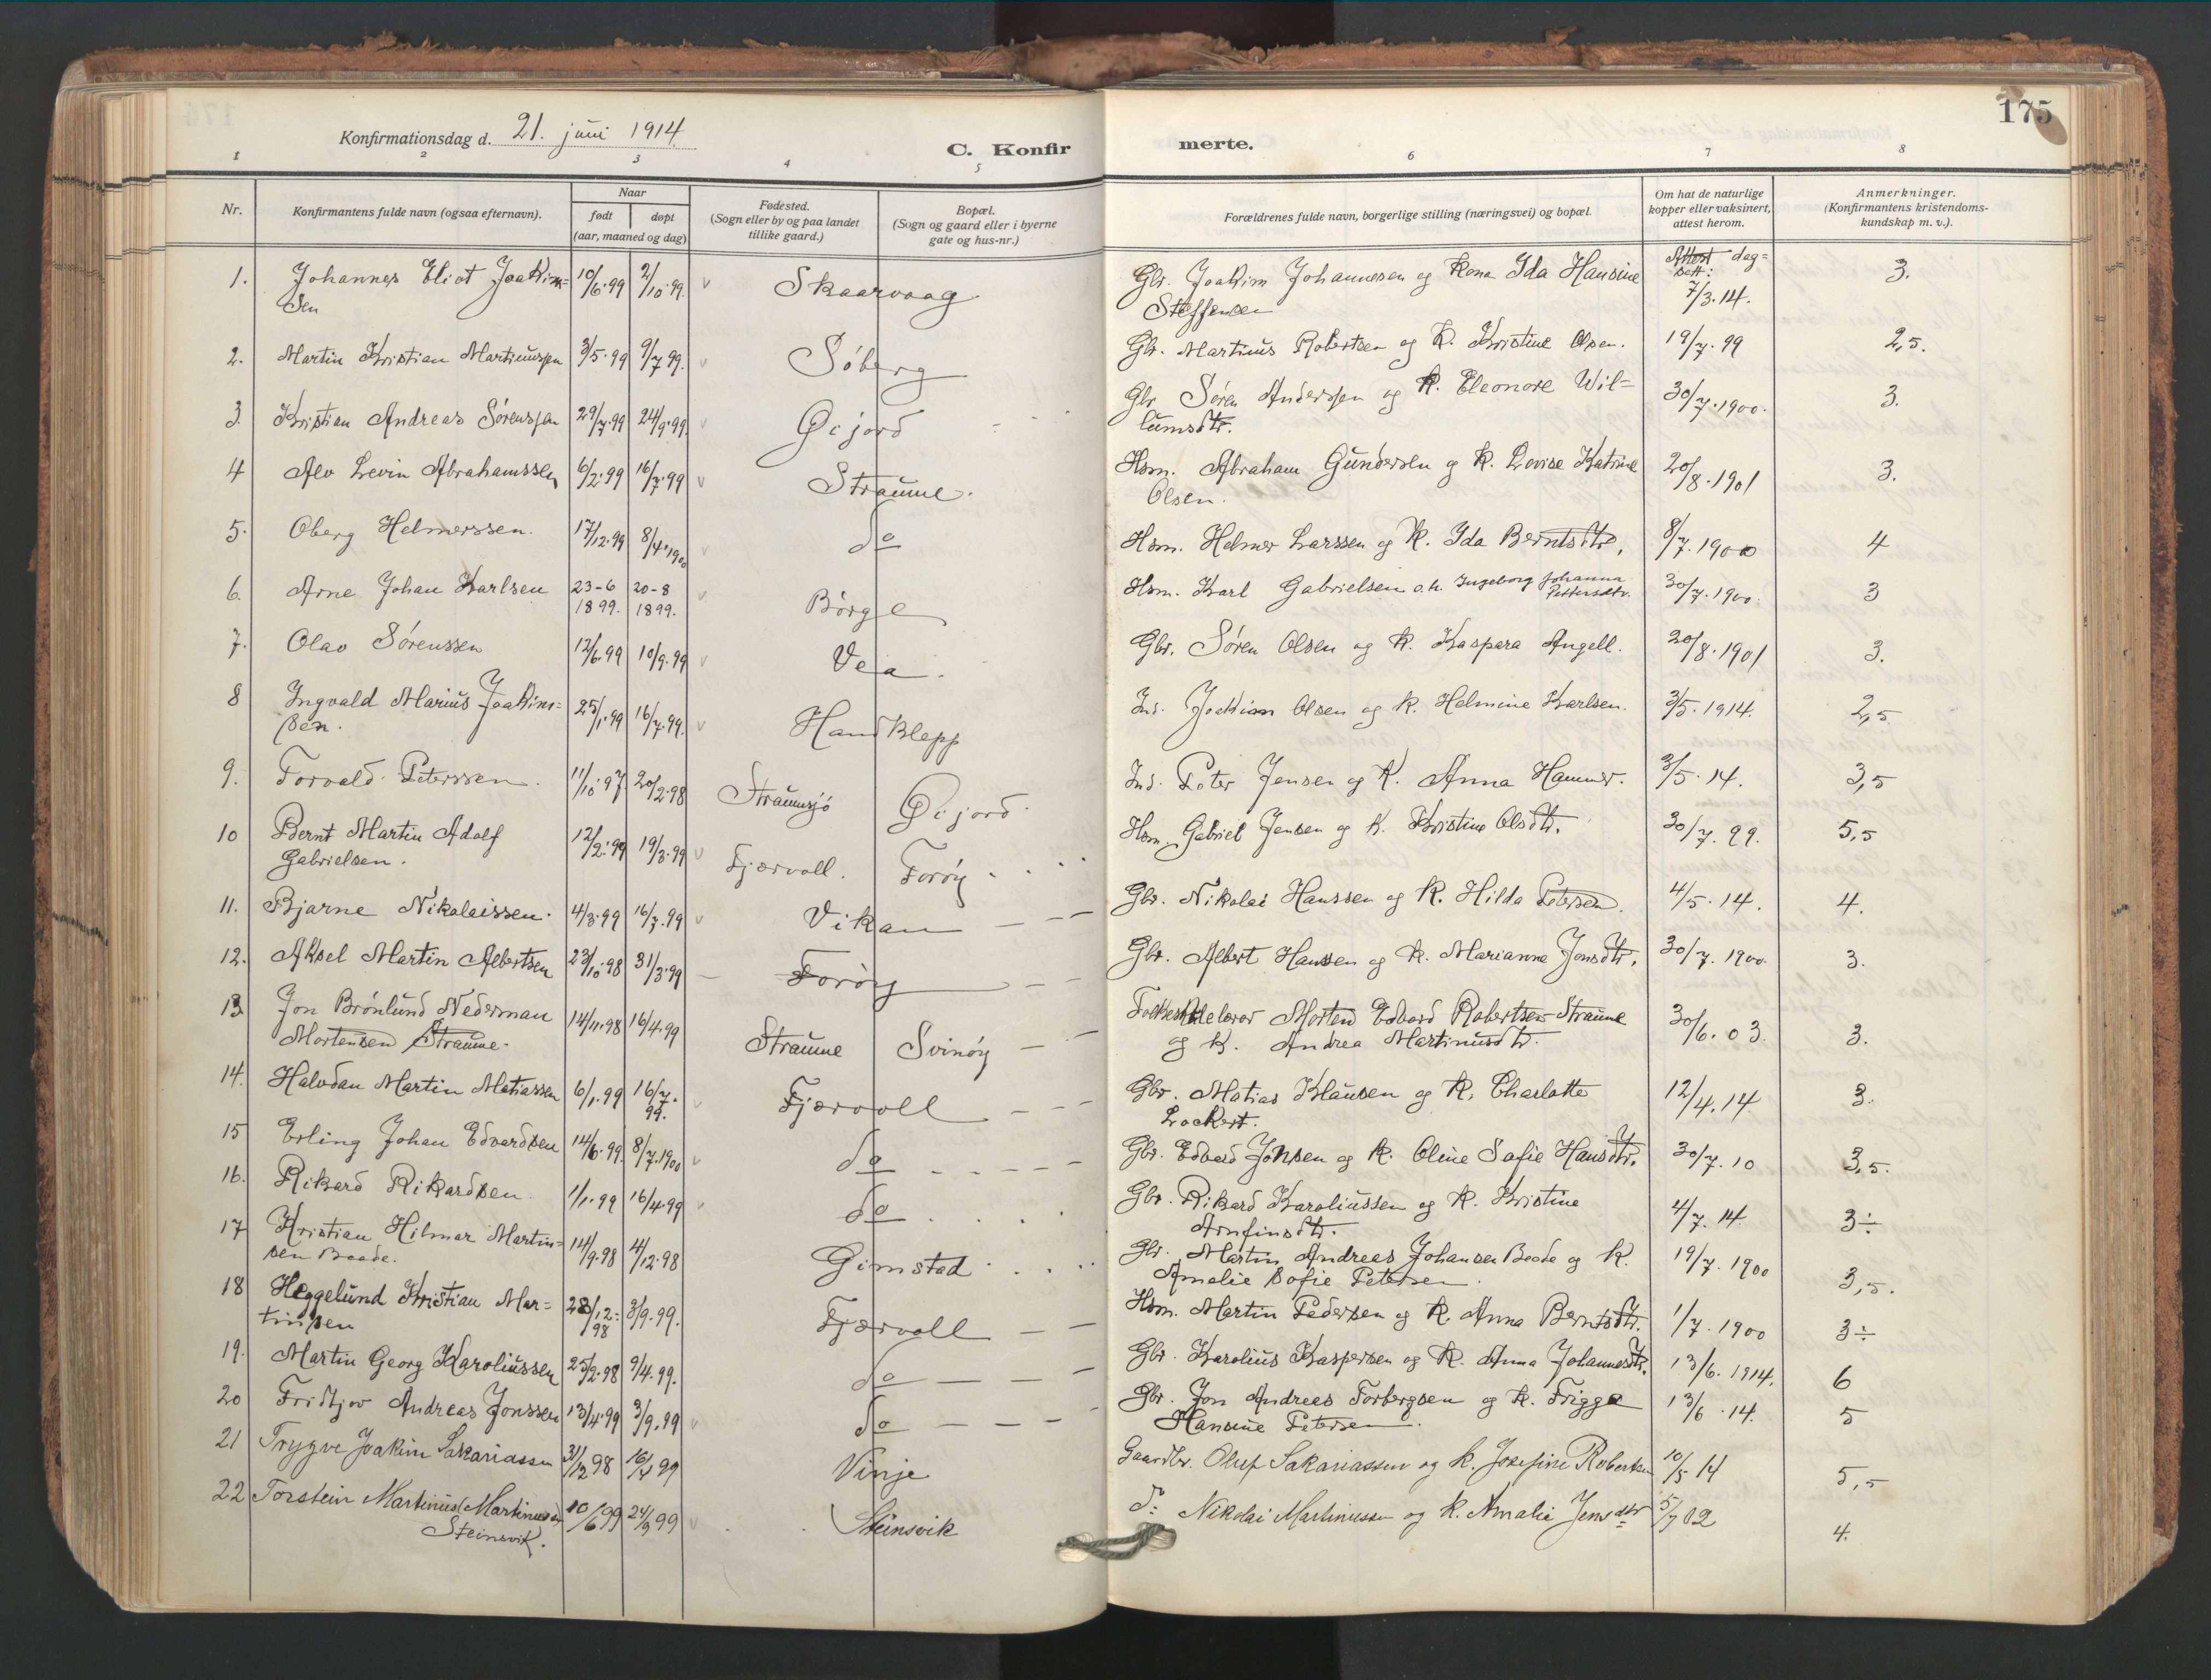 175
Konfirmationsdag d. 21. juni 1914.
C. Konfirmerte.
1 2 3 4 5 6 7 8
Nr.
Konfirmantens fulde navn (ogsaa efternavn).
Naar
født døpt
(aar, maaned og dag)
Fødested.
(Sogn eller by og paa landet
tillike gaard.)
Bopæl.
(Sogn og gaard eller i byerne
gate og hus-nr.)
Forældrenes fulde navn, borgerlige stilling (næringsvei) og bopæl.
Om hat de naturlige
kopper eller vaksinert,
attest herom.
Anmerkninger.
(Konfirmantens kristendoms-
kundskap m. v.).
1. Johannes Eliot Joakim= 10/6.99 2/10.99. Skaarvaag Gbr. Joakim Johannesen og Kona Ida Hansine Attest dag= 3.
sen Steffensen sett: 7/3.14.
2. Martin Kristian Martinussen 3/5.99 9/7 99. Söberg Gbr. Martinus Robertsen og K. Kristine Olsen. 19/7.99 2,5.
3. Kristian Andreas Sørenssen 29/7.99 24/9.99. Øijord Gbr Søren Anderssen og K. Eleonore Wil= 30/7.1900. 3.
lumsdtr.
4 Alv Levin Abrahamssen 6/2.99 16/7.99 Straume. Hsm. Abraham Gundersen og K. Lovise Katrine 20/8.1901 3.
Olsen.
5. Oberg Helmerssen. 17/12.99 8/4.1900 do Hsm. Helmer Larssen og K. Ida Berntsdtr. 8/7.1900 4
6. Arne Johan Karlsen 23-6 1899. 20-8 1899. Börge Hsm. Karl Gabrielsen o.h. Ingeborg Johanna Pettersdtr. 30/7.1900. 3
7. Olav Sörenssen 12/6.99 10/9.99 Vea. Gbr. Søren Olsen og K. Kaspara Angell. 20/8.1901 3.
8 Ingvald Marius Joakims= 25/1.99 16/7.99. Handklepp Ind. Joakim Olsen og K. Helmine Karlsen. 3/5.1914. 2,5.
sen.
9. Torvald Peterssen. 11/10.97 20/2.98 Straumsjö Øijord Ind. Peter Jensen og K. Anna Hammer. 3/5.14. 3,5
10 Bernt Martin Adolf 12/2.99 19/3.99 Fjærvoll. Forøy Hsm. Gabriel Jensen og K. Kristine Olsdtr. 30/7.99. 5,5
Gabrielsen.
11. Bjarne Nikolaissen. 4/3.99 16/7.99 Vikan Gbr. Nikolai Hanssen og K. Hilda Petersen. 4/5.14. 4.
12. Aksel Martin Albertsen 23/10.98 31/3.99 Forøy Gbr. Albert Hanssen og K. Marianna Jonsdtr. 30/7.1900. 3.
13 Jon Brönlund Nederman 14/11.98 16/4.99 Straume Svinöy Folkeskolelærer Morten Edvard Robertsen Straume 30/6.03. 3.
Mortensen Straume. og K. Andrea Martinusdtr.
14. Halvdan Martin Matiassen 6/1.99 16/7.99. Fjærvoll Gbr. Matias Klausen og K. Charlotte 12/4.14 3.
Lockert.
15 Erling Johan Edvardsen 14/6.99. 8/7.1900 do Gbr. Edvard Johsen og K. Oline Sofie Hansdtr. 30/7.10 3,5.
16. Rikard Rikardsen 1/1.99 16/4.99 do Gbr. Rikard Karoliussen og K. Kristine 4/7.14. 3÷
Arnfinsdtr.
17 Kristian Hilmar Martin= 14/9.98 4/12.98 Gimstad Gbr. Martin Andreas Johansen Boade og K. 19/7.1900 3,5.
sen Boade. Amalie Sofie Petersen.
18 Heggelund Kristian Mar= 28/12.98 3/9.99. Fjærvoll Hsm. Martin Pedersen og K. Anna Berntsdtr. 1/7.1900 3÷
tinsen
19. Martin Georg Karoliussen 25/2.98 9/4.99. do Gbr. Karolius Kaspersen og K. Anna Johannesdtr. 13/6.1914. 6
20 Fridtjov Andreas Jonssen 13/4.99 3/9.99 do Gbr. Jon Andreas Torbergsen og K. Frigga 13/6.14. 5
Hansine Petersen.
21 Trygve Joakim Sakariassen 31/12 98 16/4 99 Vinje Gaardbr. Oluf Sakariassen og K. Josefine Robertsen 10/5 14 5,5
22 Torstein Martinus (Martinusen) 10/6 99 24/9 99 Steinsvik do Nikolai Martinussen og K. Amalie Jensdtr 5/7 02 4.
Steinsvik.